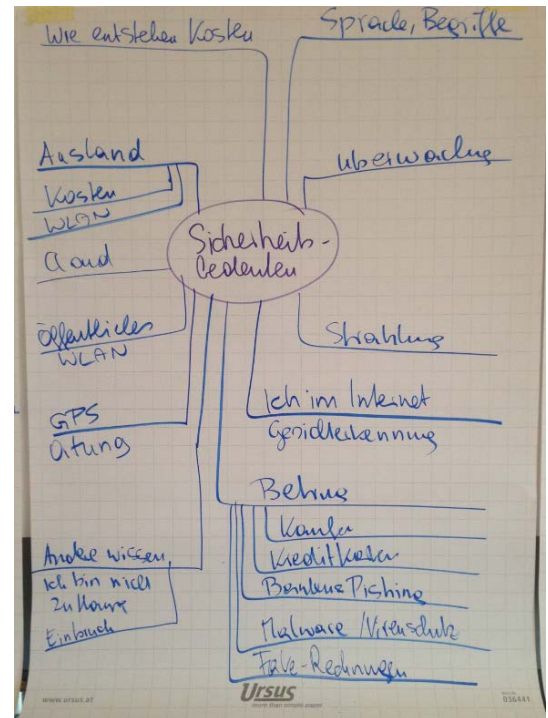 Wie entstehen Kosten
Sprache, Begriffe
Ausland
Kosten
WLAN
Überwachung
Cloud
Sicherheits-
bedenken
öffentliches
WLAN
Strahlung
GPS
Ortung
Ich im Internet
Gesichterkennung
Betrug
Kaufen
Kreditkarten
Phishing
Malware / Virenschutz
Fake-Rechnungen
Andere wissen,
ich bin nicht
zu Hause
Einbruch
www.ursus.at
Ursus
more than simple paper
036441